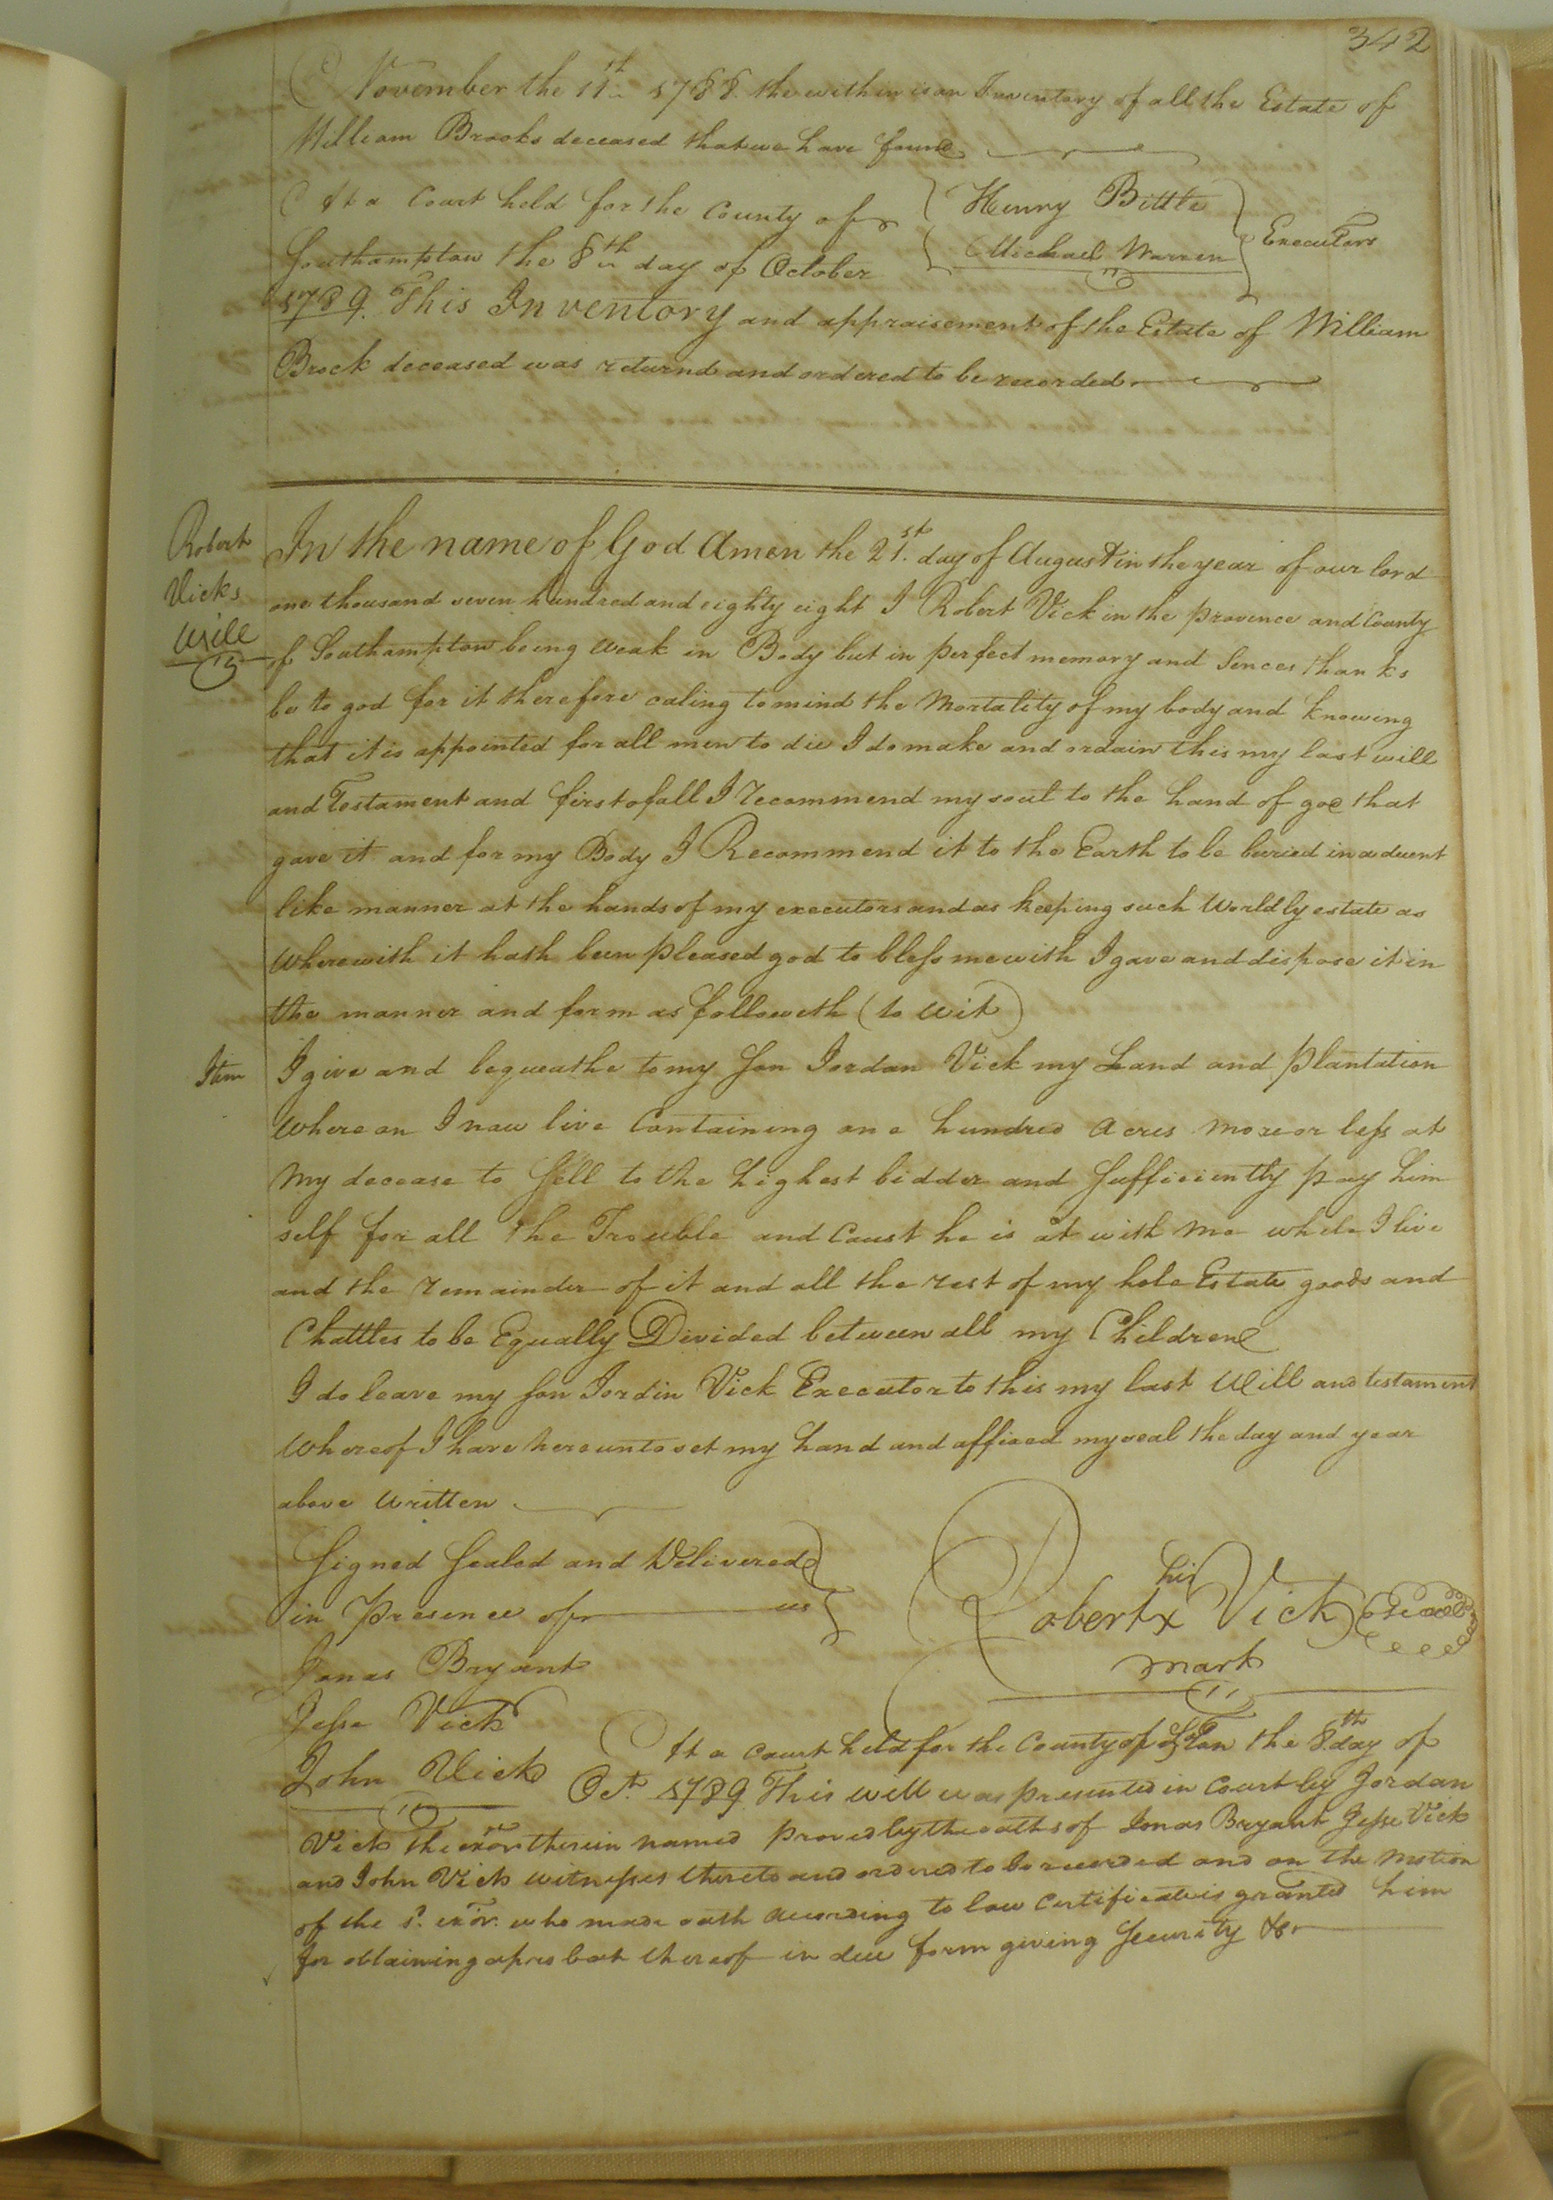 342
November the 11th 1788 the within is an Inventory of all the Estate of
William Brooks deceased that we have found
At a Court held for the County of
Southampton the 8th day of October
Henry Bittle
Michael Warren
Executors
1789. This Inventory and appraisement of the Estate of William
Brock deceased was returnd and ordered to be recorded
Robert
Vicks
Will
In the name of God Amen the 21st. day of August in the year of our lord
one thousand seven hundred and eighty eight I Robert Vick in the province and County
of Southampton being weak in Body but in perfect memory and Sences thanks
be to god for it therefore caling to mind the Mortality of my body and knowing
that it is appointed for all men to die I do make and ordain this my last will
and Testament and first of all I recommend my soul to the hand of god that
gave it and for my Body I Recommend it to the Earth to be buried in a decent
like manner at the hands of my executors and as keeping such Worldly estate as
wherewith it hath been pleased god to bless me with I gave and dispose it in
the manner and form as followeth (to wit)
Item
I give and bequeathe to my Son Jordan Vick my Land and plantation
Where on I now live Containing one hundred Acres more or less at
My decease to Sell to the highest bidder and Sufficiently pay him
self for all the Trouble and Coust he is at with me while I live
and the remainder of it and all the rest of my hole Estate goods and
Chattles to be Equally Divided between all my Children
I do leave my Son Jordin Vick Executor to this my last Will and testament
Whereof I have hereunto set my hand and affixed my seal the day and year
above written
Signed Sealed and Delivered
in Presence of us
his
Robert x Vick (Seal)
mark
Jonas Bryant
Jesse Vick
John Vick
At a Court held for the County of Soton the 8th day of
Oct. 1789 This will was presented in Court by Jordan
Vick the exor therein named proved by the oaths of Jonas Bryant Jesse Vick
and John Vick witnesses thereto and ordered to be recorded and on the motion
of the sd. exor. who made oath according to law Certificate is granted him
for obtaining a probat thereof in due form giving Security &c